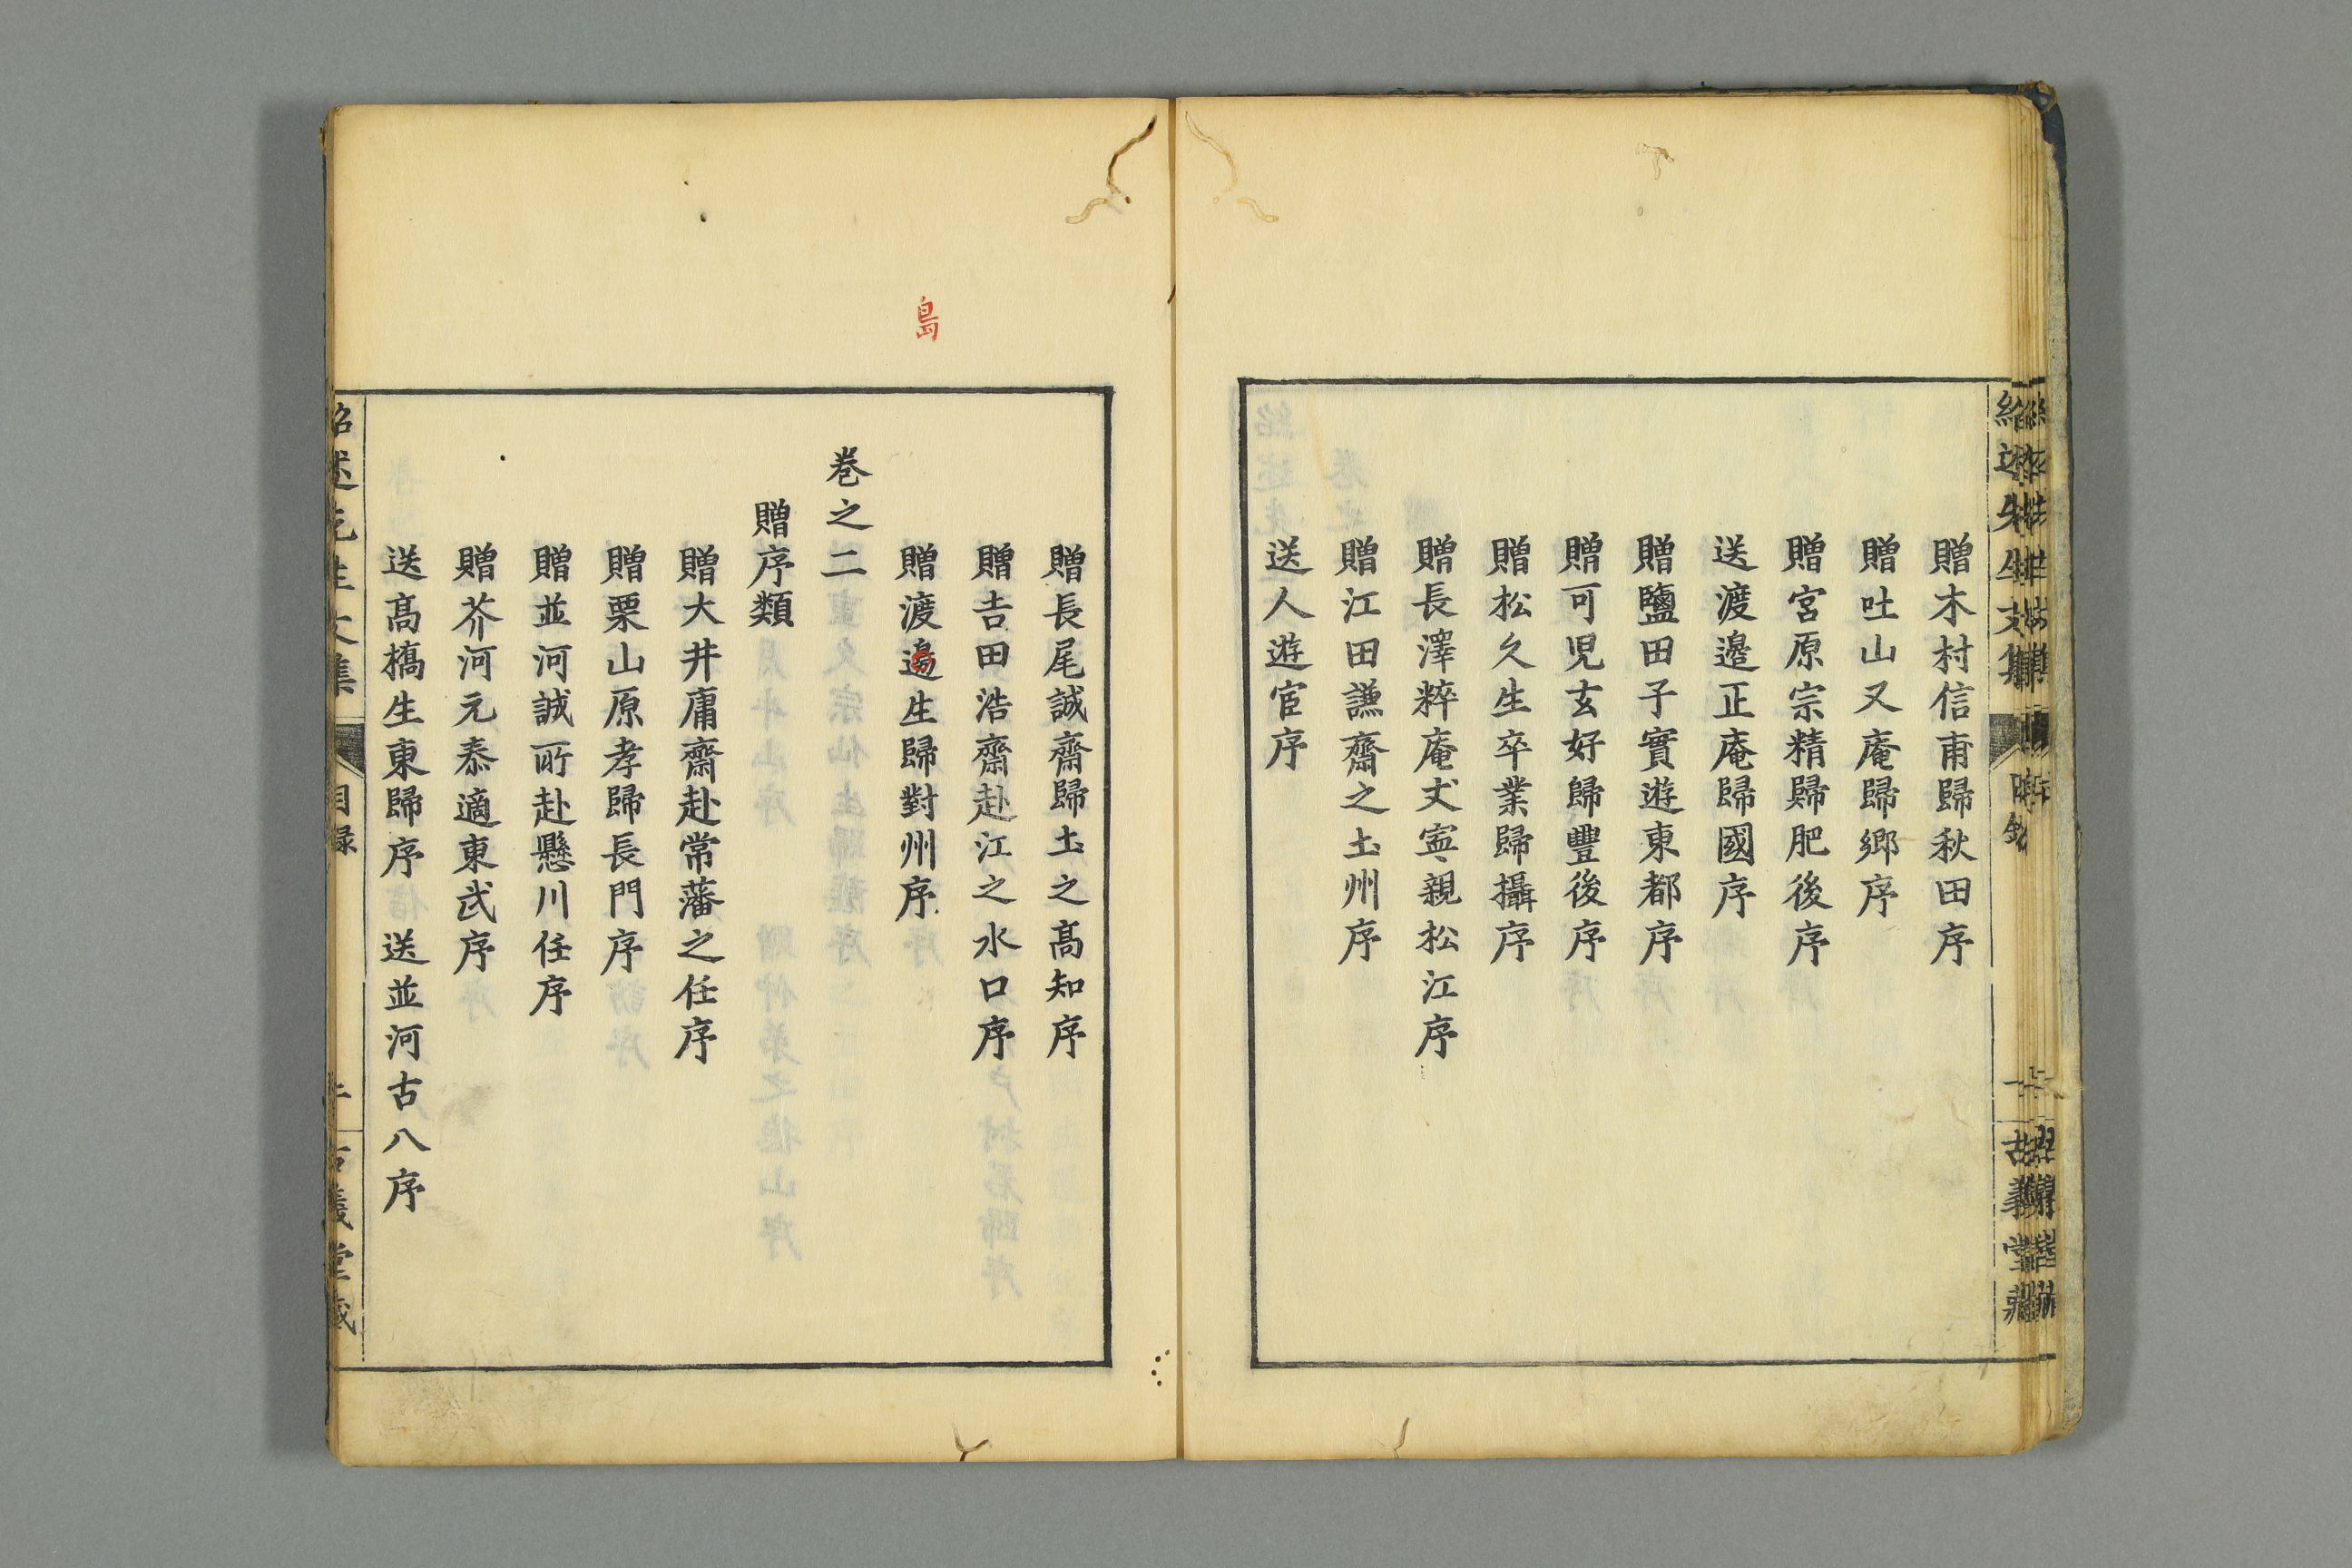 贈木村信甫歸秋田序
贈吐山又庵歸鄉序
贈宮原宗精歸肥後序
送渡邉正庵歸國序
贈鹽田子實遊東都序
贈可児玄好歸豐後序
贈松久生卒業歸攝序
贈長澤粹庵丈寧親松江序
贈江田謙齋之土州序
送人遊宦序
島
贈長尾誠齋歸土之髙知序
贈吉田浩齋赴江之水口序
贈渡邉生歸對州序
卷之二
贈序類
贈大井庸齋赴常藩之任序
贈栗山原孝歸長門序
贈並河誠所赴懸川任序
贈芥河元泰適東武序
送髙橋生東歸序 送並河古八序
紹述先生文集 目録 古義堂藏